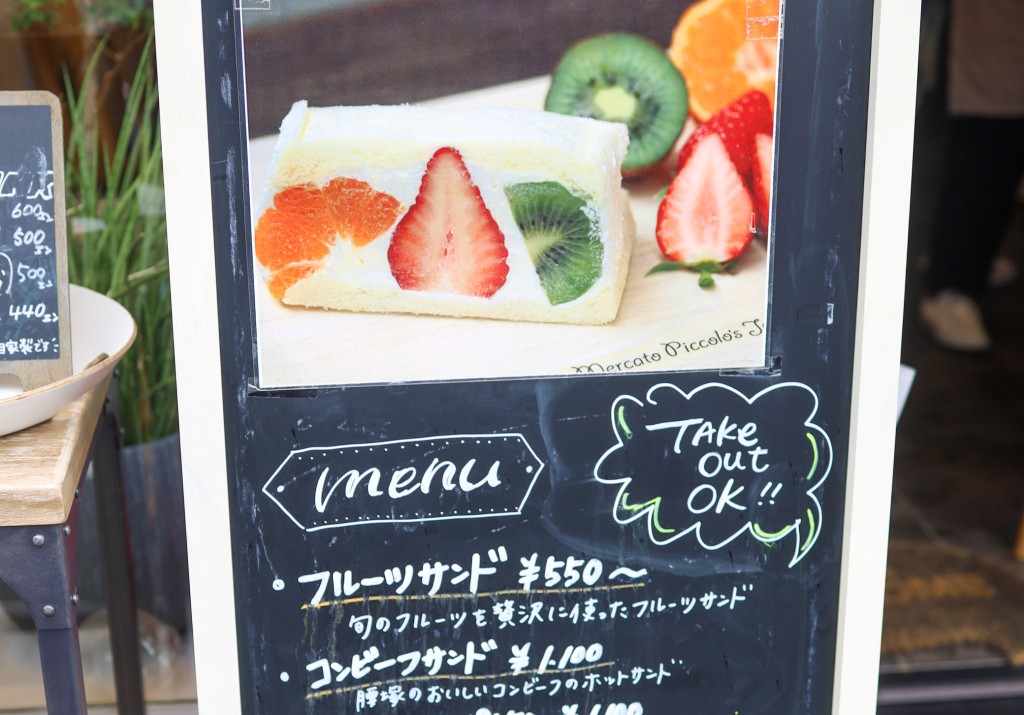 600エン
500エン
500エン
440エン
自家製です
Mercato Piccolo's
menu
TAKE
OUT
OK!!
・フルーツサンド ¥550〜
旬のフルーツを贅沢に使ったフルーツサンド
・コンビーフサンド ¥1,100
腰塚のおいしいコンビーフのホットサンド
¥1,100